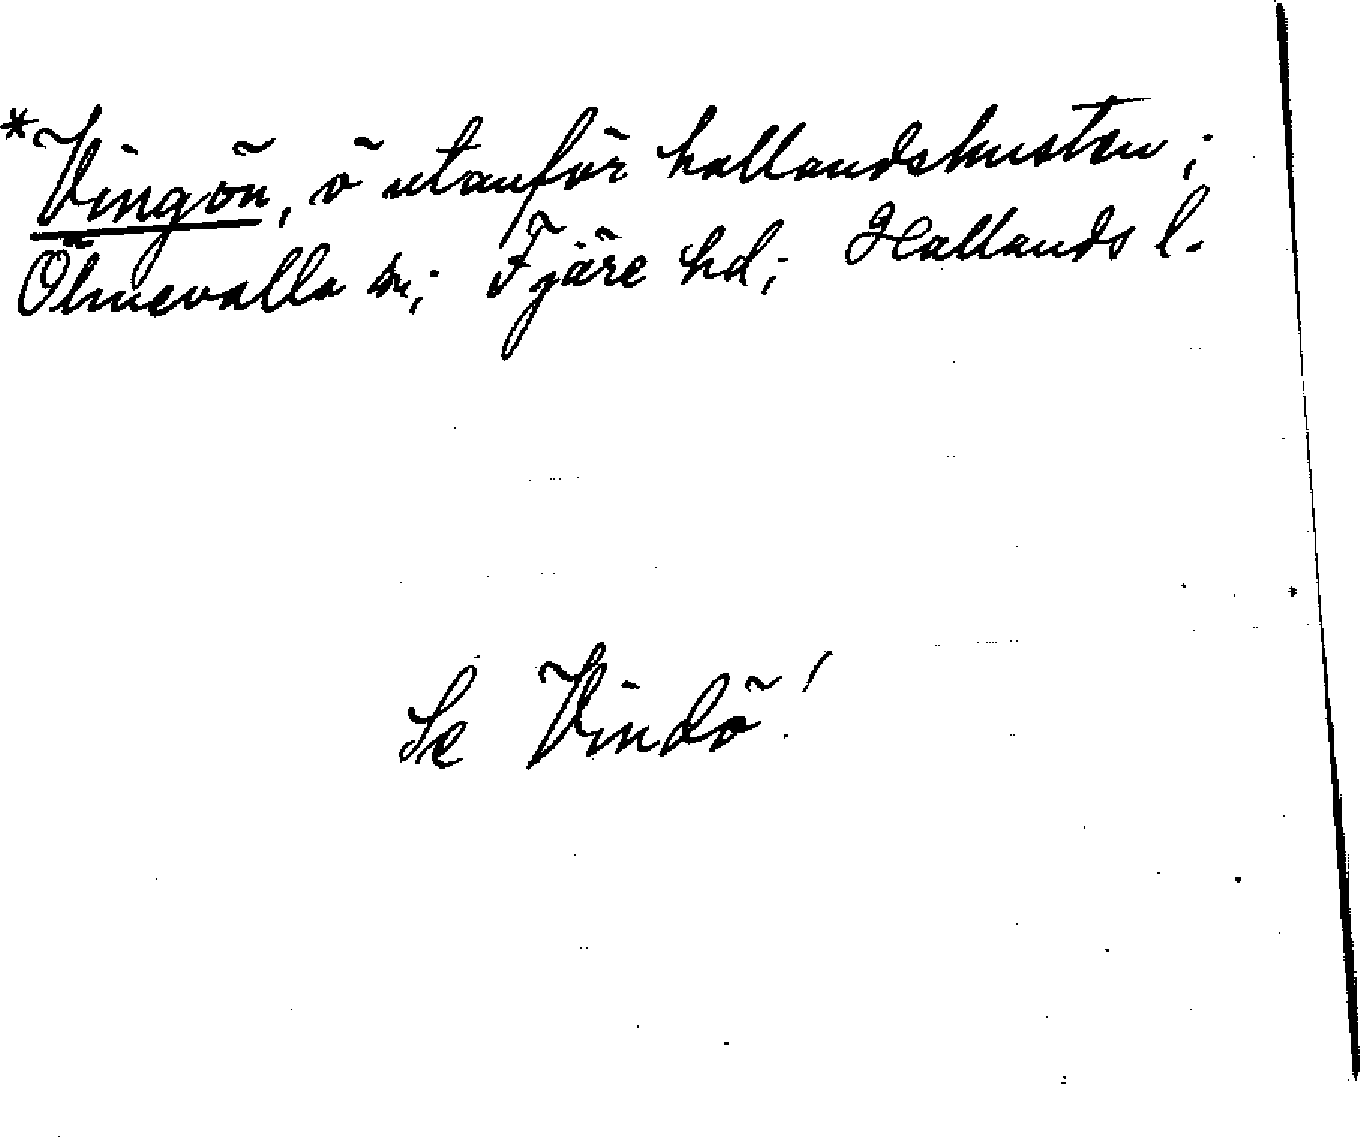 *Vingön, ö utanför hallandskusten;
Ölmevalla sn; Fjäre hd; Hallands l.
Se Vindö!